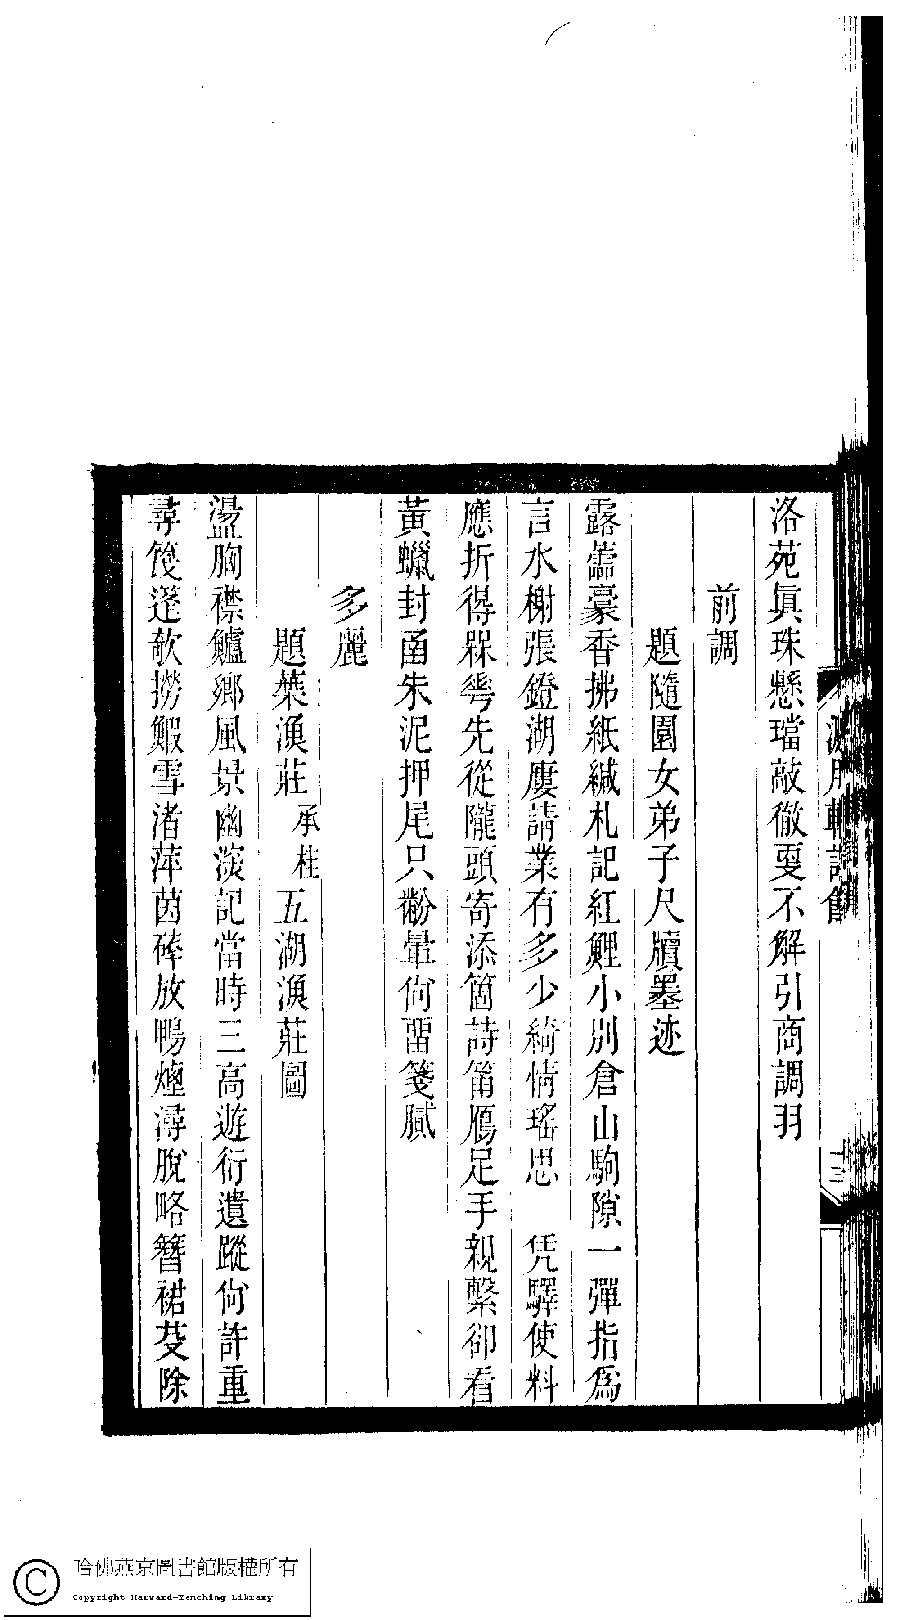 洛苑眞珠懸璫敲徹更不解引商調羽
前調
題隨園女弟子尺牘墨迹
露蕭豪香拂紙緘札記紅鯉小別倉山駒隙一彈指爲
言水榭張鐙湖廔請業有多少綺情瑤思　凭驛使料
應折得槑芼先從隴頭寄添箇詩筩鴈足手親繫卻看
黃蠟封函朱泥押尾只黺暈尙畱箋膩
多麗
題葉漁莊承桂五湖漁莊圖
盪胸襟鱸鄉風景幽淡記當時三高遊衍遺蹤何許重
尋笩蓬欹撈鰕雪渚萍茵碎放鴨煙潯脫略簪裾芟除
十三
哈佛燕京圖書館版權所有
Copyright Harvard-Yenching Library